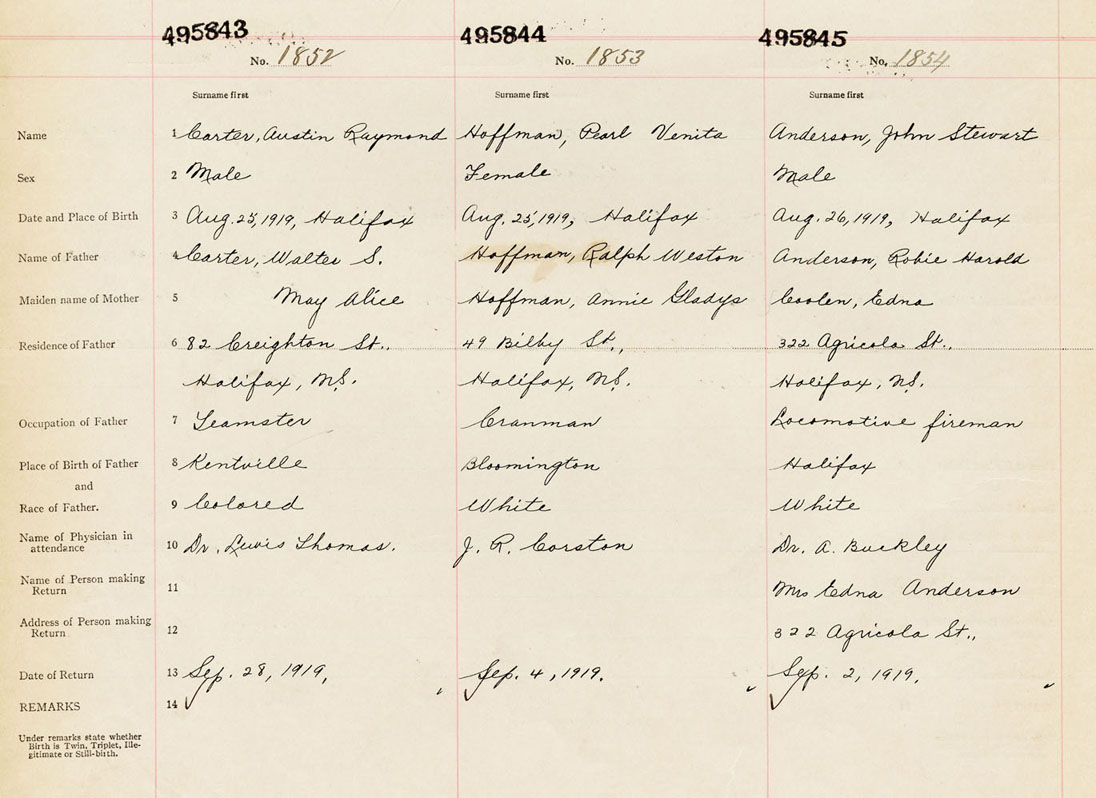 495843 495844 495845
No. 1852 No. 1853 No. 1854
Surname first Surname first Surname first
Name 1 Carter, Austin Raymond Hoffman, Pearl Venita Anderson, John Stewart
Sex 2 Male Female Male
Date and Place of Birth 3 Aug. 25, 1919, Halifax Aug. 25, 1919, Halifax Aug. 26, 1919, Halifax
Name of Father 4 Carter, Walter S. Hoffman, Ralph Weston Anderson, Robie Harold
Maiden name of Mother 5 May Alice Hoffman, Annie Gladys Coolen, Edna
Residence of Father 6 82 Creighton St., 49 Bilby St., 322 Agricola St.,
Halifax, N.S. Halifax, N.S. Halifax, N.S.
Occupation of Father 7 Teamster Cranman Locomotive fireman
Place of Birth of Father 8 Kentville Bloomington Halifax
and
Race of Father. 9 Colored White White
Name of Physician in
attendance 10 Dr. Lewis Thomas. J. R. Corston Dr. A. Buckley
Name of Person making
Return 11 Mrs Edna Anderson
Address of Person making
Return 12 322 Agricola St.,
Date of Return 13 Sep. 28, 1919. Sep. 4, 1919. Sep. 2, 1919.
REMARKS 14
Under remarks state whether
Birth is Twin, Triplet, Ille-
gitimate or Still-birth.